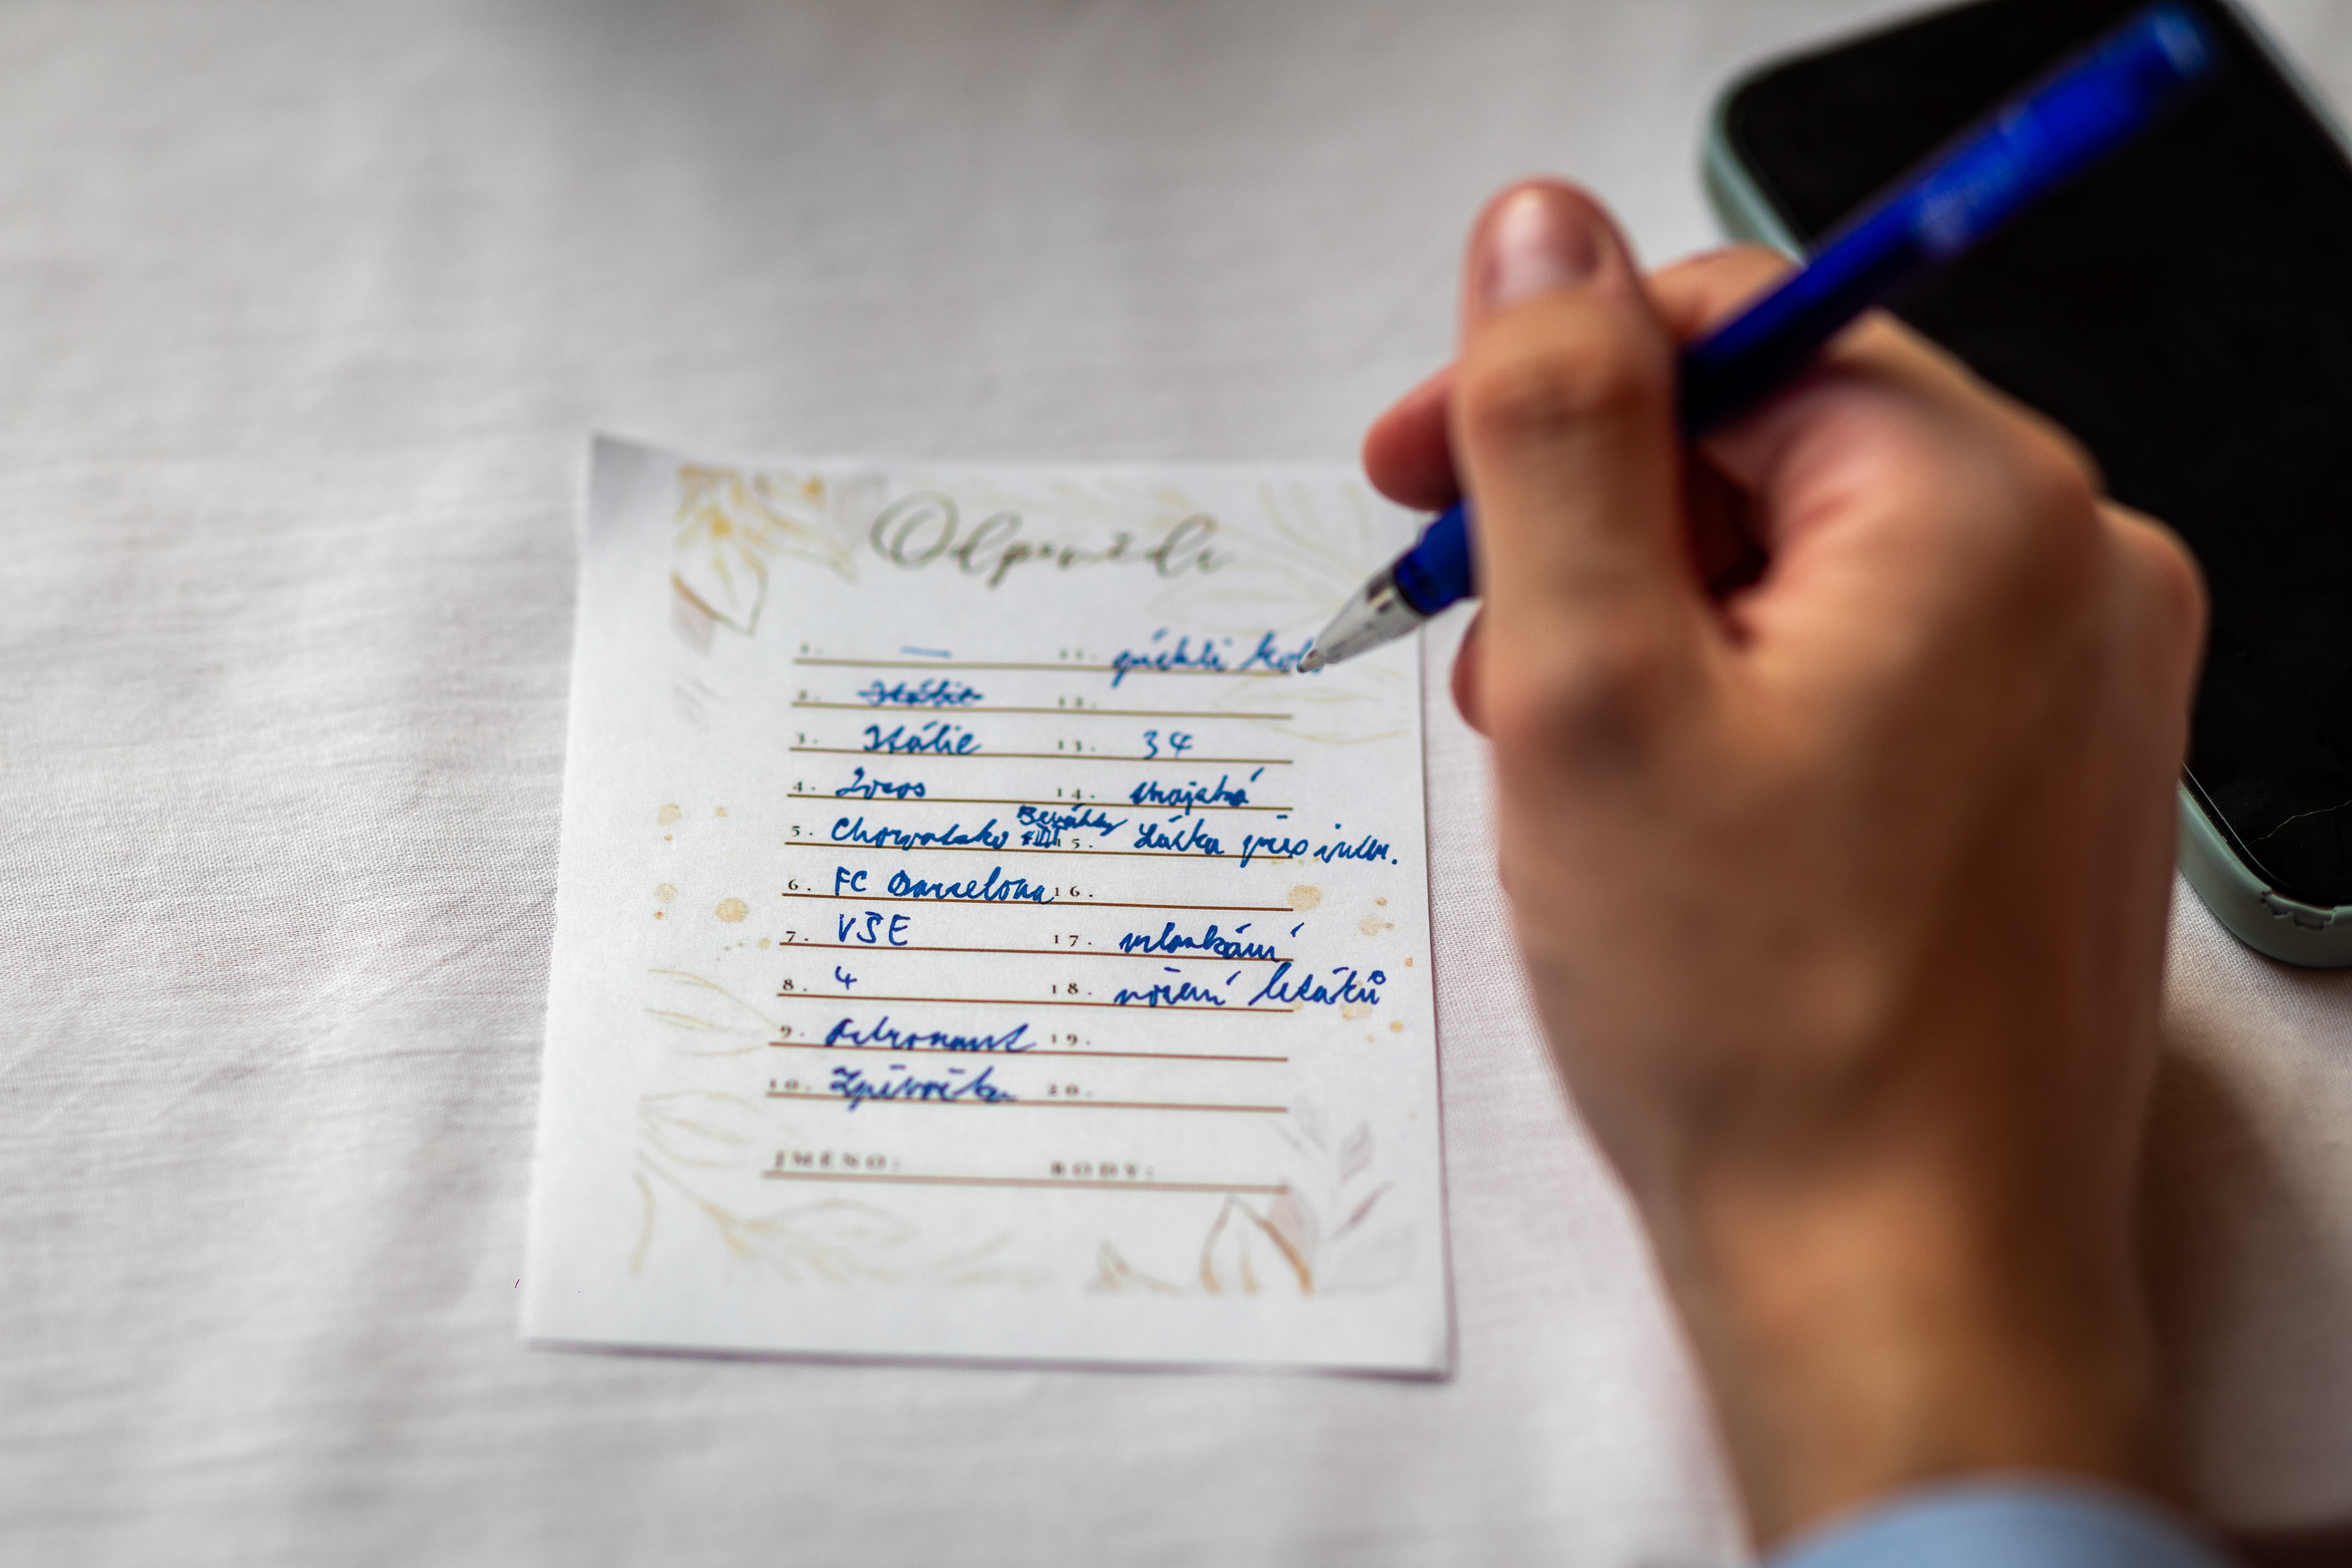 Odpovědi
1. — 11. píchlé kolo
2. Itálie 12.
3. Itálie 13. 34
4. 14.
5. Chorvatsko 15. Láska přes
6. FC Barcelona 16.
7. VŠE 17.
8. 4 18. letáků
9. Astronaut 19.
10. Zpěvačka 20.
JMÉNO: BODY: